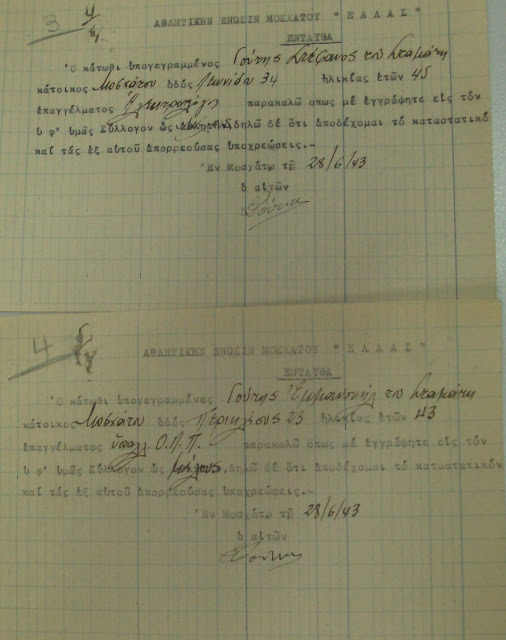 3
ΑΘΛΗΤΙΚΗΝ ΕΝΩΣΙΝ ΜΟΣΧΑΤΟΥ " Ε Λ Λ Α Σ "
ΕΝΤΑΥΘΑ
Ὁ κάτωθι ὑπογεγραμμένος Γούτης Στέφανος τοῦ Σταμάτη
κάτοικος Μοσχάτου ὁδός Λεωνίδα 34 ἡλικίας ἐτῶν 45
ἐπαγγέλματος παρακαλῶ ὅπως μέ ἐγγράψητε εἰς τόν
ὑ φ' ὑμᾶς Σύλλογον ὡς δηλῶ δέ ὅτι ἀποδέχομαι τό καταστατικό
καί τάς ἐξ αὐτοῦ ἀπορρεούσας ὑποχρεώσεις.-
Ἐν Μοσχάτῳ τῇ 28/6/43
ὁ αἰτῶν
4
ΑΘΛΗΤΙΚΗΝ ΕΝΩΣΙΝ ΜΟΣΧΑΤΟΥ " Ε Λ Λ Α Σ "
ΕΝΤΑΥΘΑ
Ὁ κάτωθι ὑπογεγραμμένος Γούτης Ἐμμανουήλ τοῦ Σταμάτη
κάτοικος Μοσχάτου ὁδός Περικλέους 23 ἡλικίας ἐτῶν 43
ἐπαγγέλματος ὑπαλλ. Ο.Λ.Π. παρακαλῶ ὅπως μέ ἐγγράψητε εἰς τόν
ὑ φ' ὑμᾶς Σύλλογον ὡς μέλους, δηλῶ δέ ὅτι ἀποδέχομαι τό καταστατικόν
καί τάς ἐξ αὐτοῦ ἀπορρεούσας ὑποχρεώσεις.-
Ἐν Μοσχάτῳ τῇ 28/6/43
ὁ αἰτῶν